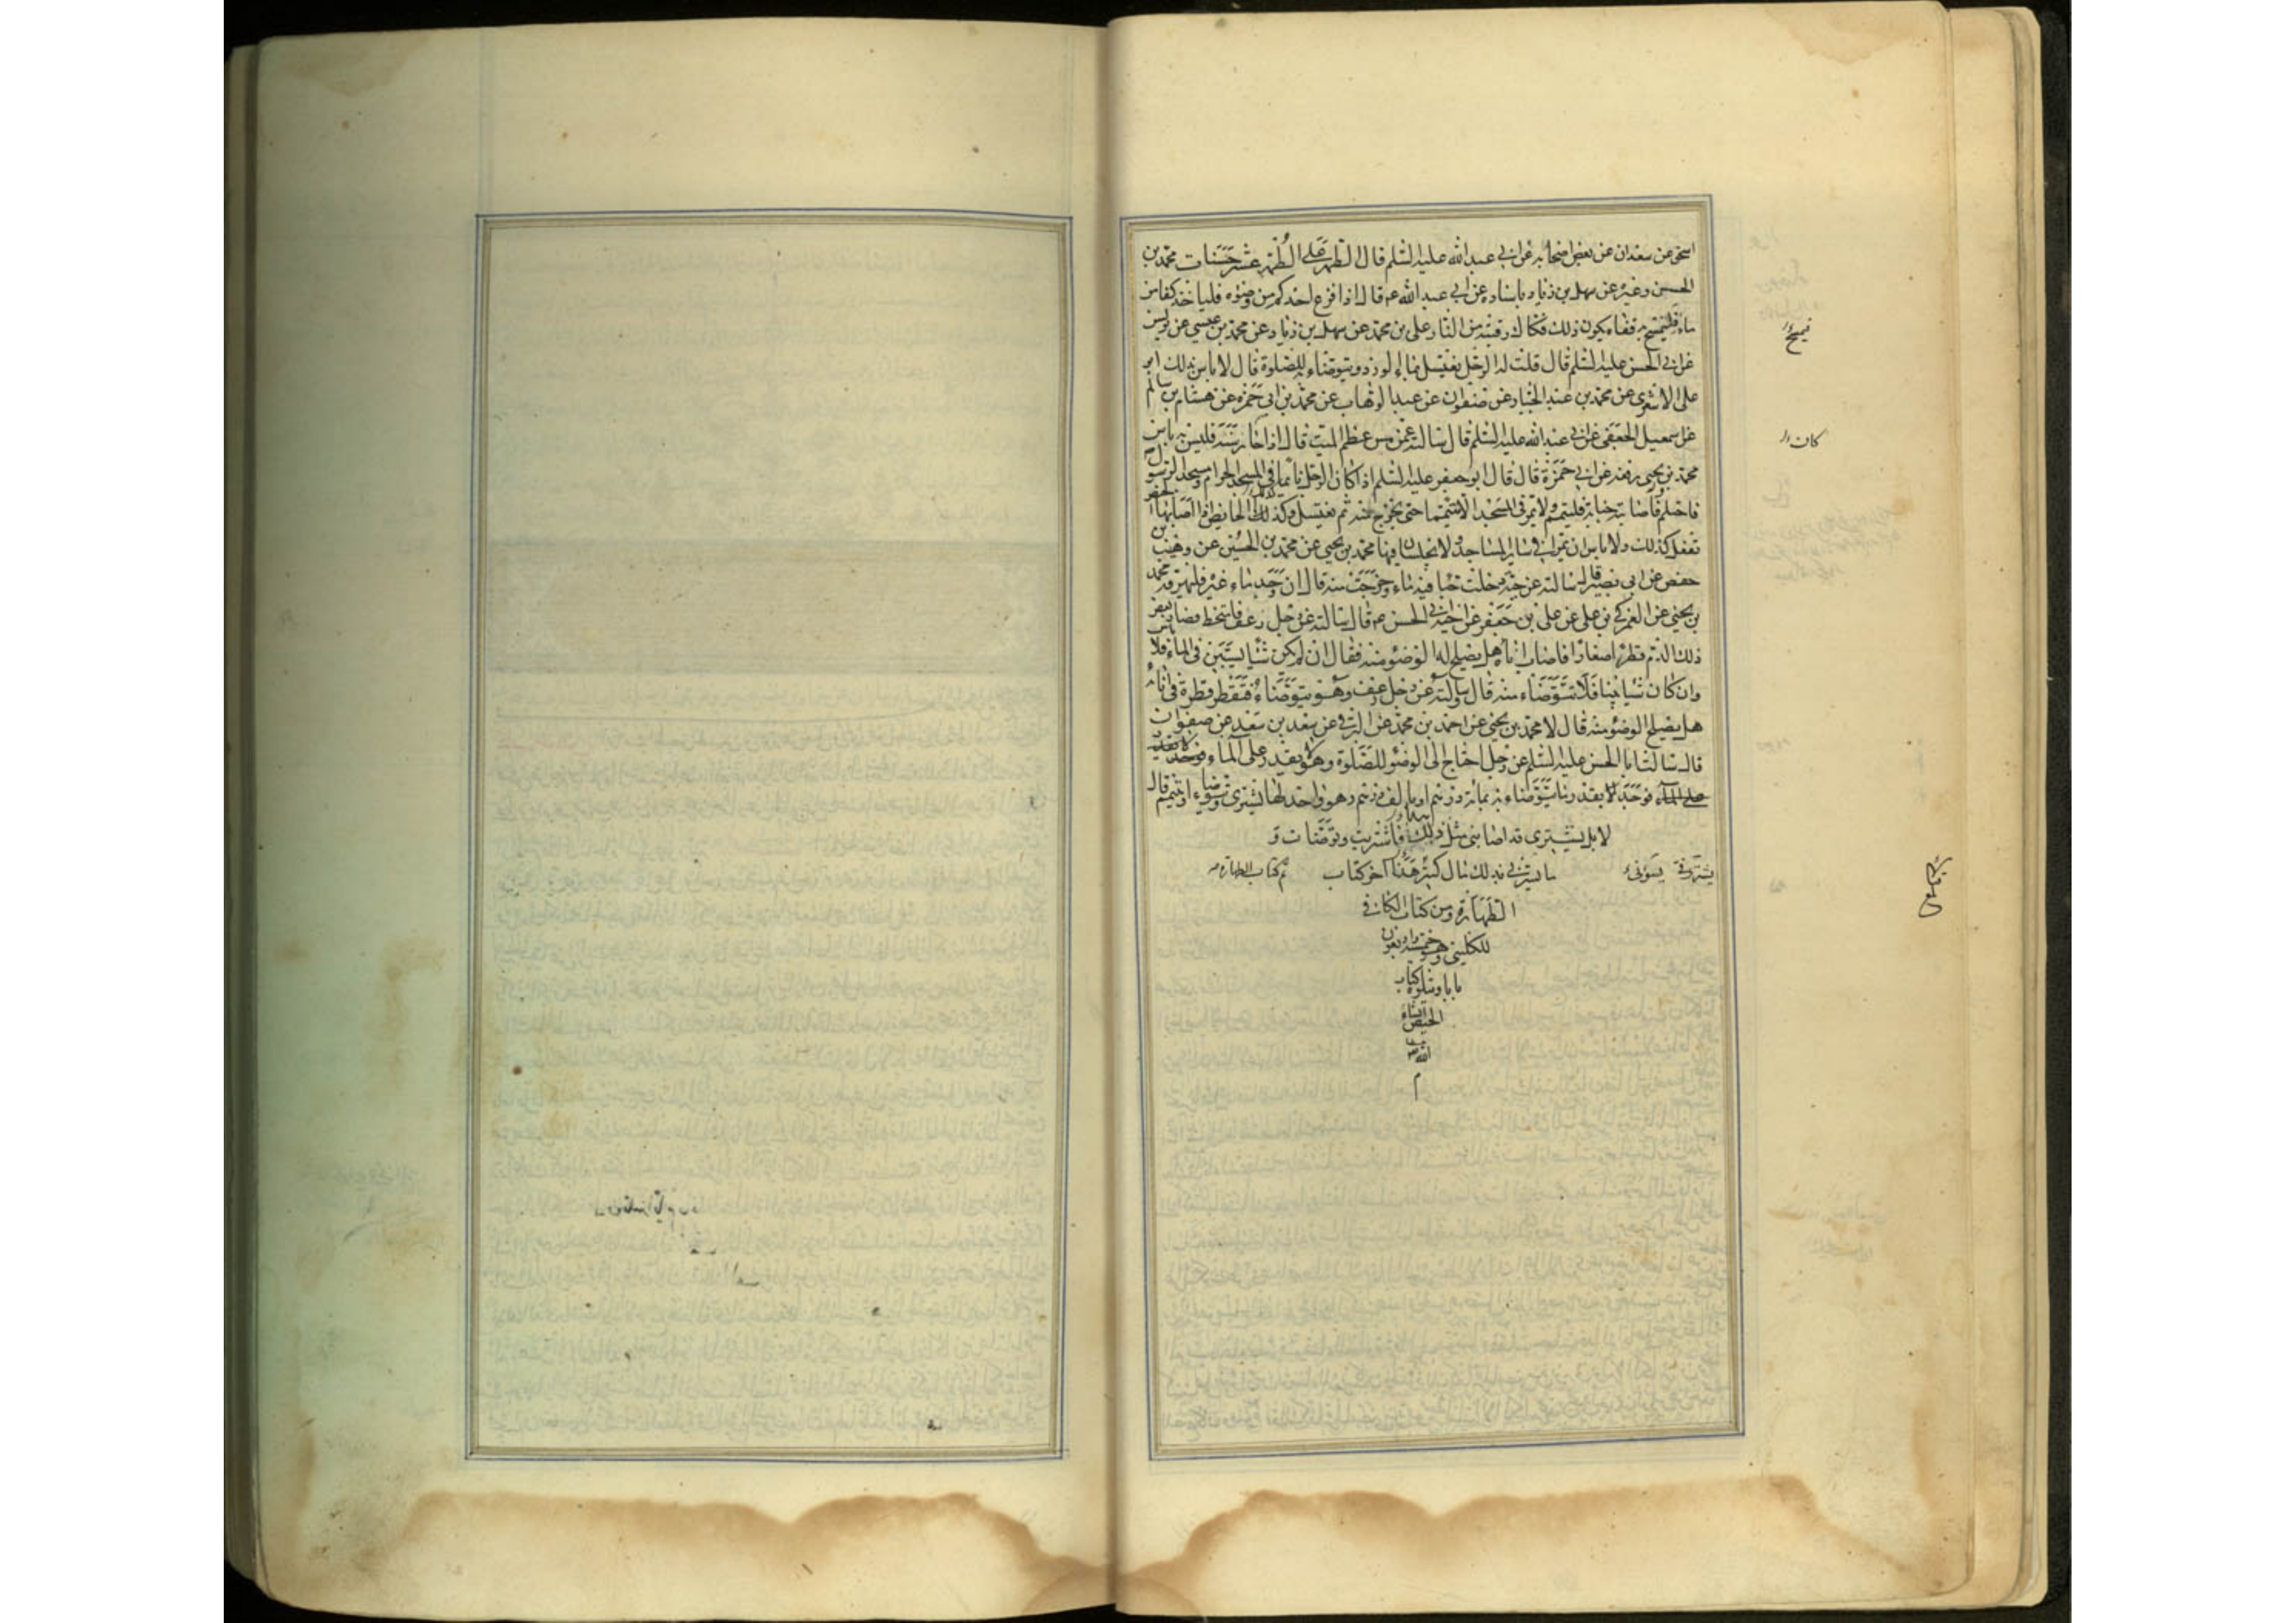 اسحق عن سعدان عن بعض اصحابه عن ابي عبد الله عليه السلم قال الطهر على الطهر عشر حسنات محمد بن
الحسن وغيره عن سهل بن زياد باسناده عن ابي عبد الله ع قال اذا فرغ احدكم من وضوئه فلياخذ كفا من
ماء فليمسح به قفاه يكون ذلك فكاك رقبته من النار علي بن محمد عن سهل بن زياد عن محمد بن عيسى عن يونس
عن ابي الحسن عليه السلم قال قلت له الرجل يغتسل بماء الورد ويتوضاء به للصلوة قال لا باس بذلك ابو
علي الاشعري عن محمد بن عبد الجبار عن صفوان عن عبد الوهاب عن محمد بن ابي حمزه عن هشام بن سالم
عن اسمعيل الجعفي عن ابي عبد الله عليه السلم قال سالته عمن مس عظم الميت قال اذا جاز سنة فليس به باس
محمد بن يحيى رفعه عن ابي حمزة قال قال ابو جعفر عليه السلم اذا كان الرجل نائما في المسجد الحرام او مسجد الرسول
فاحتلم فاصابته جنابة فليتيمم ولا يمر في المسجد الا متيمما حتى يخرج منه ثم يغتسل وكذلك الحائض اذا اصابها الحيض
تفعل كذلك ولا باس ان يمرا في سائر المساجد ولا يجلسان فيها محمد بن يحيى عن محمد بن الحسين عن وهيب بن
حفص عن ابي بصير قال سالته عن حية دخلت حبا فيه ماء وخرجت منه قال ان وجد ماء غيره فليهرقه محمد
بن يحيى عن العمركي بن علي عن علي بن جعفر عن اخيه ابي الحسن ع قال سالته عن رجل رعف فامتخط فصار بعض
ذلك الدم قطرا صغارا فاصاب اناءه هل يصلح له الوضوء منه فقال ان لم يكن شئ يستبين في الماء فلا باس
وان كان شيئا بينا فلا تتوضاء منه قال وسالته عن رجل رعف وهو يتوضاء فتقطر قطرة في انائه
هل يصلح الوضوء منه قال لا محمد بن يحيى عن احمد بن محمد عن البرقي عن سعد بن سعد عن صفوان
قال سالت ابا الحسن عليه السلم عن رجل احتاج الى الوضوء للصلوة وهو لا يقدر على الماء فوجد
على الماء فوجد بقدر ما يتوضاء به بمائة درهم او بالف درهم وهو واجد لها يشتري ويتوضاء او يتيمم قال
لا بل يشتري قد اصابني مثل ذلك فاشتريت وتوضات و
ما يسرني بذلك مال كثير هذا اخر كتاب
تم كتاب الطهارة
الطهارة من كتاب الكافي
للكليني وهو خمسة واربعون
بابا ويتلوه كتاب
الحيض انشاء
الله
كان